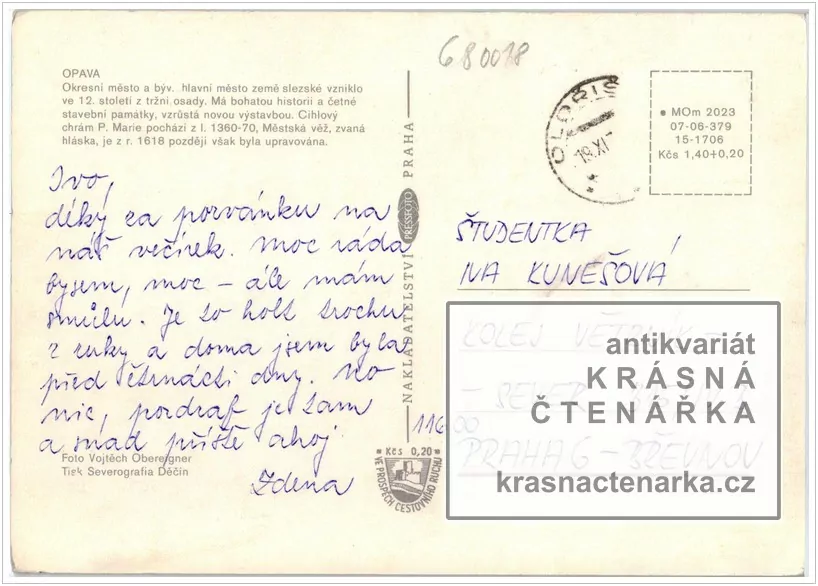 680018
OPAVA
Okresní město a býv. hlavní město země slezské vzniklo
ve 12. století z tržní osady. Má bohatou historii a četné
stavební památky, vzrůstá novou výstavbou. Cihlový
chrám P. Marie pochází z l. 1360-70, Městská věž, zvaná
hláska, je z r. 1618 později však byla upravována.
Ivo,
díky za pozvánku na
náš večírek. Moc ráda
bysem, moc – ale mám
smůlu. Je to holt trochu
z ruky a doma jsem byla
před čtrnácti dny. No
nic, pozdraf je tam
a snad příště ahoj
Zdena
Foto Vojtěch Obereigner
Tisk Severografia Děčín
NAKLADATELSTVÍ PRESSFOTO PRAHA
Kčs 0,20
VE PROSPĚCH CESTOVNÍHO RUCHU
19.XI
MOm 2023
07-06-379
15-1706
Kčs 1,40+0,20
ŠTUDENTKA
IVA KUNEŠOVÁ
KOLEJ VĚTRNÍK
- SEVER
116 00
PRAHA 6 - BŘEVNOV
antikvariát
KRÁSNÁ
ČTENÁŘKA
krasnactenarka.cz